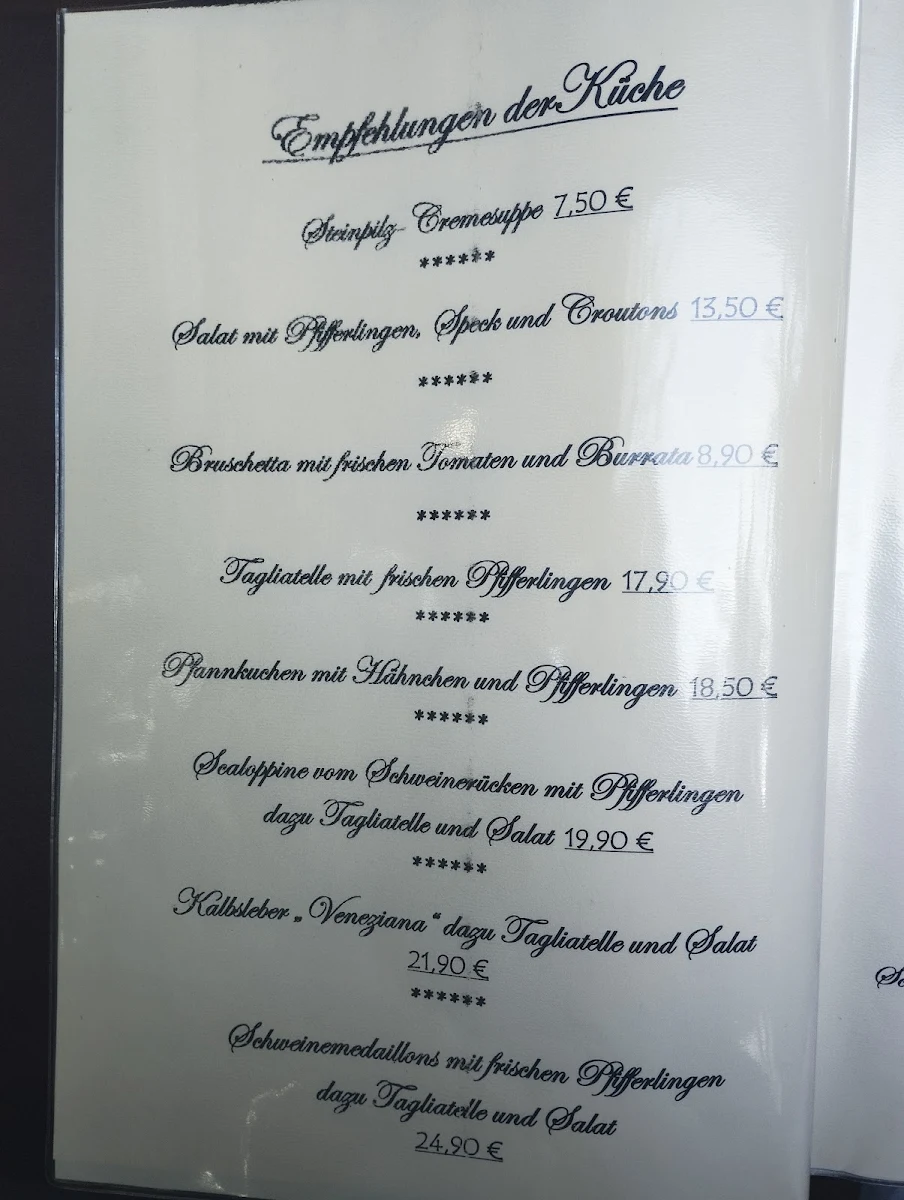 Empfehlungen der Küche
Steinpilz- Cremesuppe 7,50 €
******
Salat mit Pfifferlingen, Speck und Croutons 13,50 €
******
Bruschetta mit frischen Tomaten und Burrata 8,90 €
******
Tagliatelle mit frischen Pfifferlingen 17,90 €
******
Pfannkuchen mit Hähnchen und Pfifferlingen 18,50 €
******
Scaloppine vom Schweinerücken mit Pfifferlingen
dazu Tagliatelle und Salat 19,90 €
******
Kalbsleber „Veneziana“ dazu Tagliatelle und Salat
21,90 €
******
Schweinemedaillons mit frischen Pfifferlingen
dazu Tagliatelle und Salat
24,90 €